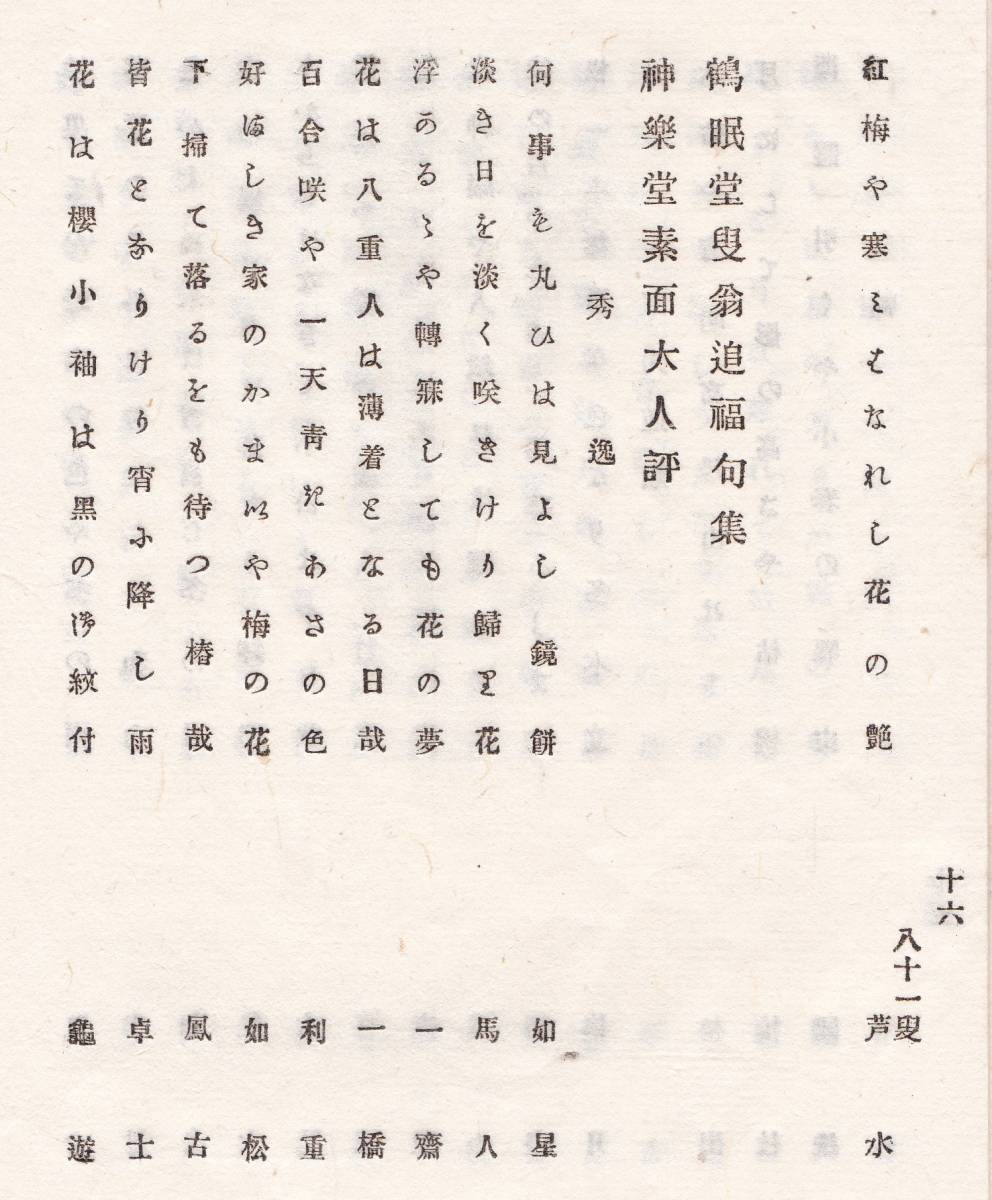 十六
紅梅や寒ミもなれし花の艶 八十一叟 芦水
鶴眠堂叟翁追福句集
神樂堂素面大人評
秀逸
何事も丸ひは見よし鏡餅 如星
淡き日を淡く咲きけり歸り花 馬人
浮かるゝや轉寐しても花の夢 一齋
花は八重人は薄着となる日哉 一橋
百合咲や一天靑きあさの色 利重
好ましき家のかまいや梅の花 如松
下掃て落るをも待つ椿哉 鳳古
皆花となりけり宵に降し雨 卓士
花は櫻小袖は黑の御紋付 龜遊